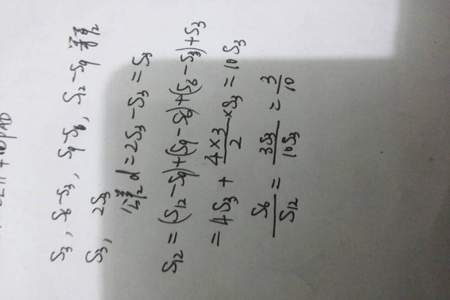 S₃, S₆-S₃, S₉-S₆, S₁₂-S₉ 等差
S₃, 2S₃
公差d=2S₃-S₃=S₃
S₁₂=(S₁₂-S₉)+(S₉-S₆)+(S₆-S₃)+S₃
=4S₃+\frac{4×3}{2}×S₃=10S₃
\frac{S₆}{S₁₂}=\frac{3S₃}{10S₃}=\frac{3}{10}